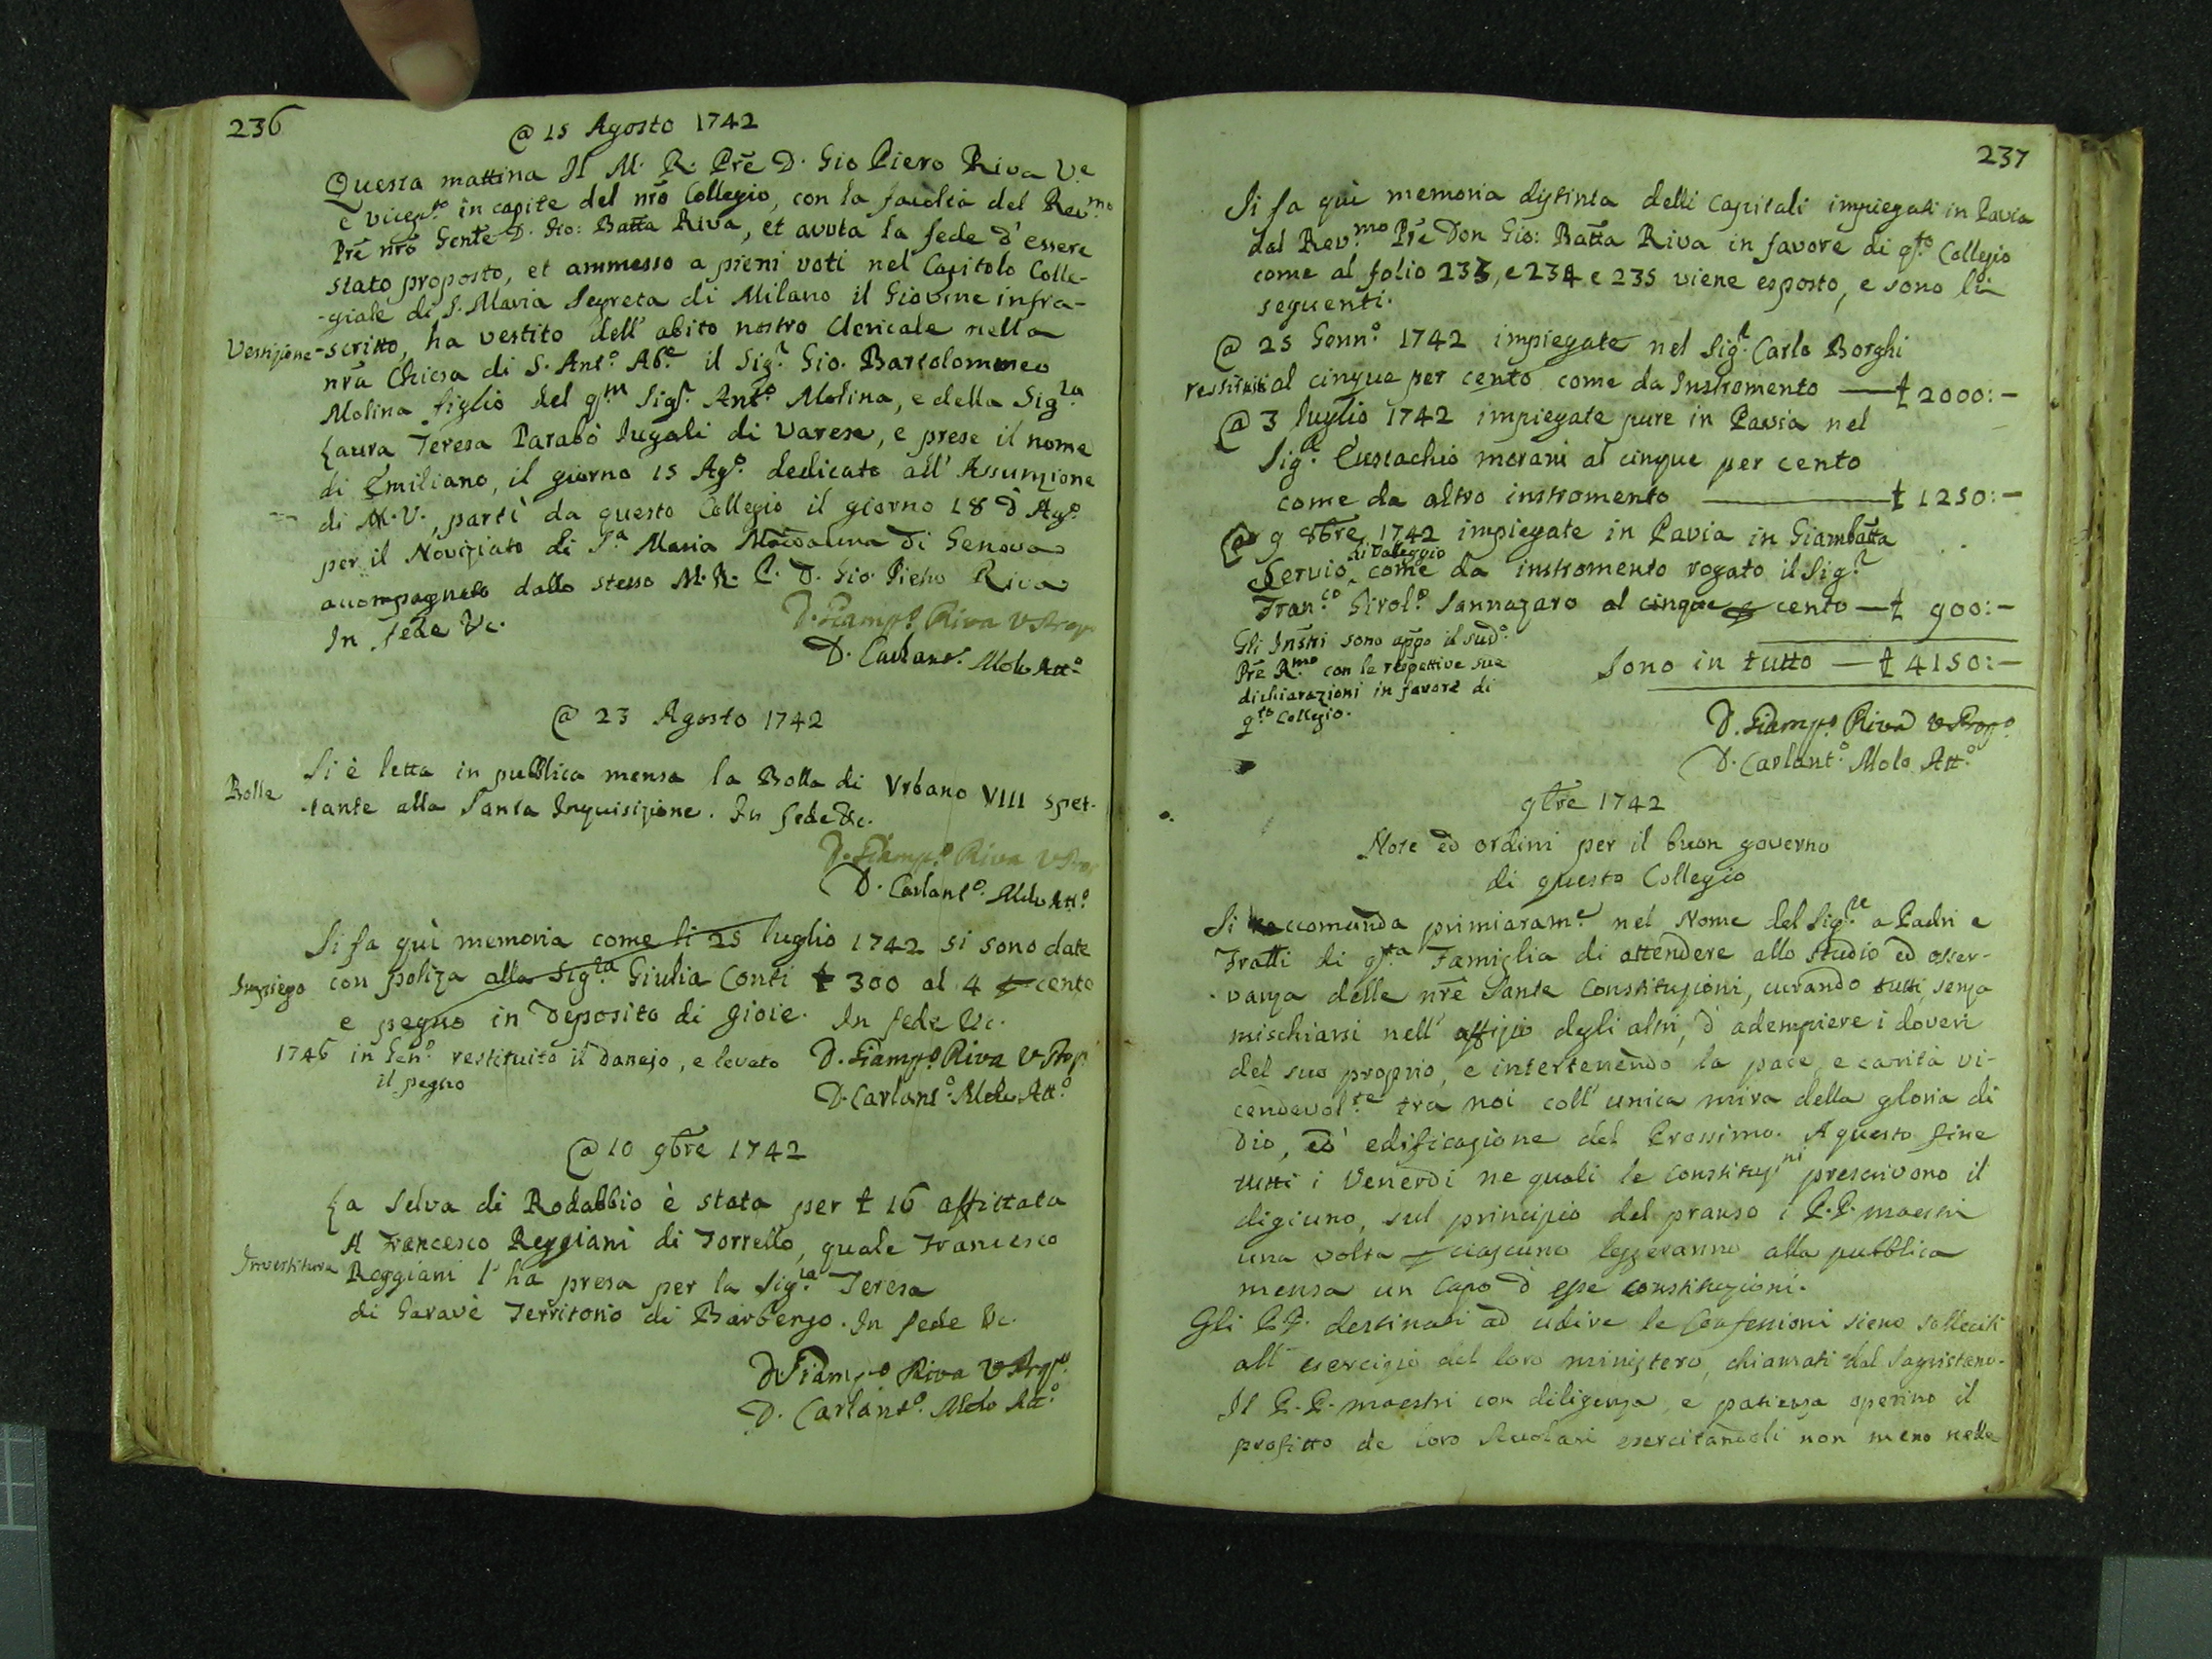 236
@ 15 Agosto 1742
Questa mattina Il M. R. Prē D. Gio Piero Riva V.e
e vicep.to in capite del nrō Collegio, con la facoltà del Rev.mo
Prē nrō Gente D. Gio: Batta Riva, et avuta la fede d'essere
stato proposto, et ammesso a pieni voti nel Capitolo Colle-
-giale di S. Maria Segreta di Milano il Giovine infra-
Vestizione -scritto, ha vestito dell' abito nostro Clericale nella
nrā Chiesa di S. Ant.o Ab.e il Sig.r Gio. Bartolommeo
Molina figlio del q.m Sig.r Ant.o Molina, e della Sig.ra
Laura Teresa Parabò Iugali di Varese, e prese il nome
di Emiliano, il giorno 15 Ag.o dedicato all' Assunzione
di M. V., partì da questo Collegio il giorno 18 d Ag.o
per il Noviziato di S.a Maria Maddalena di Genova
accompagnato dallo stesso M. R. P. D. Gio. Pietro Riva
In fede &c.
D. Giamp.o Riva V Prop.
D. Carlant.o Molo Att.o
@ 23 Agosto 1742
Si è letta in pubblica mensa la Bolla di Vrbano VIII spet-
Bolla -tante alla Santa Inquisizione. In fede &c.
D. Giamp.o Riva V Prop
D. Carlant.o Molo Att.o
Si fa quì memoria come li 25 luglio 1742 si sono date
Impiego con poliza alla Sig.ra Giulia Conti ł 300 al 4 p cento
e pegno in deposito di gioie. In fede &c.
1746 in Gen.o restituito il danajo, e levato
il pegno
D. Giamp.o Riva V Prop.
D. Carlant.o Molo Att.o
@ 10 9bre 1742
La Selva di Rodabbio è stata per ł 16 affittata
A Francesco Reggiani di Torrello, quale Francesco
Investitura Reggiani l' ha presa per la Sig.ra Teresa
di Garavè Territorio di Barbengo. In fede &c.
D Giamp.o Riva V Prop.o
D. Carlant.o Molo Att.o
237
Si fa quì memoria distinta delli Capitali impiegati in Pavia
dal Rev.mo Prē Don Gio: Batta Riva in favore di q.to Collegio
come al folio 233, e 234 e 235 viene esposto, e sono li
seguenti.
@ 25 Genn.o 1742 impiegate nel Sig.r Carlo Borghi
restituiti al cinque per cento come da Instromento — ł 2000:-
@ 3 luglio 1742 impiegate pure in Pavia nel
Sig.r Eustachio morani al cinque per cento
come da altro instromento — ł 1250:-
@ 9 8bre 1742 impiegate in Pavia in Giambatta
di Valeggio
Servio, come da instromento rogato il Sig.r
Fran.co Girol.o Sannazaro al cinque p cento — ł 900:-
Gli Instri sono appo il sud.o
Prē R.mo con le respettive sue
dichiarazioni in favore di
q.to Collegio.
Sono in tutto — ł 4150:-
D. Giamp.o Riva V Prop.o
D. Carlant.o Molo Att.o
9bre 1742
Note ed ordini per il buon governo
di questo Collegio
Si raccomanda primieram.e nel Nome del Sig.re a Padri e
Fratti di q.ta Famiglia di attendere allo studio ed osser-
-vanza delle nrē Sante Constituzioni, curando tutti, senza
mischiarsi nell' offizio degli altri, d' adempiere i doveri
del suo proprio, e intertenendo la pace, e carità vi-
cendevol.te tra noi coll' unica mira della gloria di
Dio, ed edificazione del Prossimo. A questo fine
tutti i Venerdì ne quali le constituz.ni prescrivono il
digiuno, sul principio del pranso i P.P. maestri
una volta p ciascuno leggeranno alla pubblica
mensa un Capo d esse constituzioni.
Gli P.P. destinati ad udire le Confessioni sieno solleciti
all' esercizio del loro ministero, chiamati dal Sagristano.
Il P.P. maestri con diligenza, e patienza operino il
profitto de loro Scolari esercitandoli non meno nella